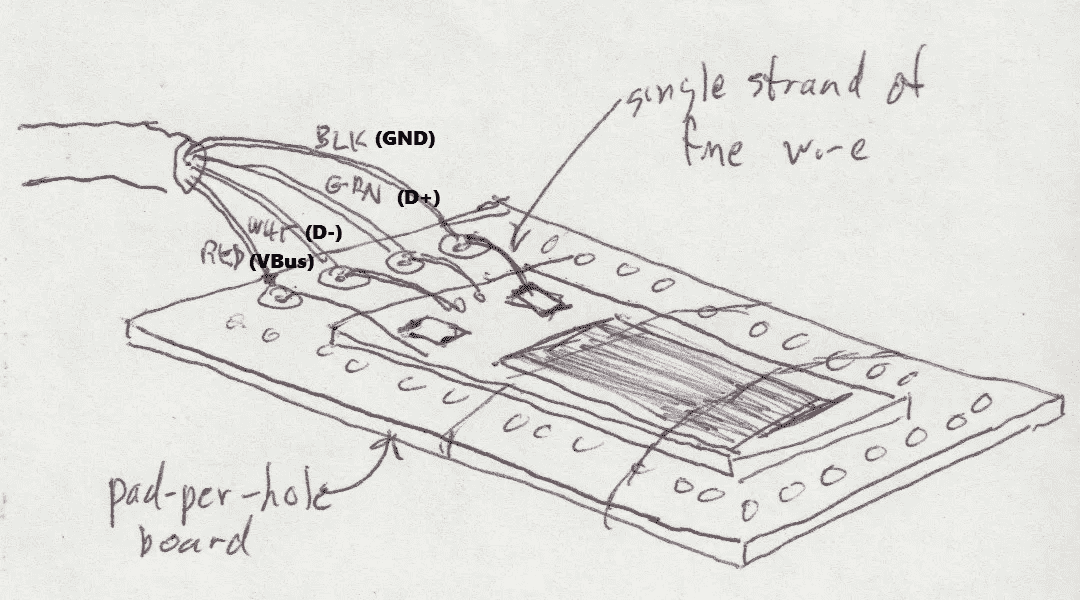 single strand of
fine wire
BLK (GND)
GRN (D+)
WHT (D-)
RED (VBus)
pad-per-hole
board